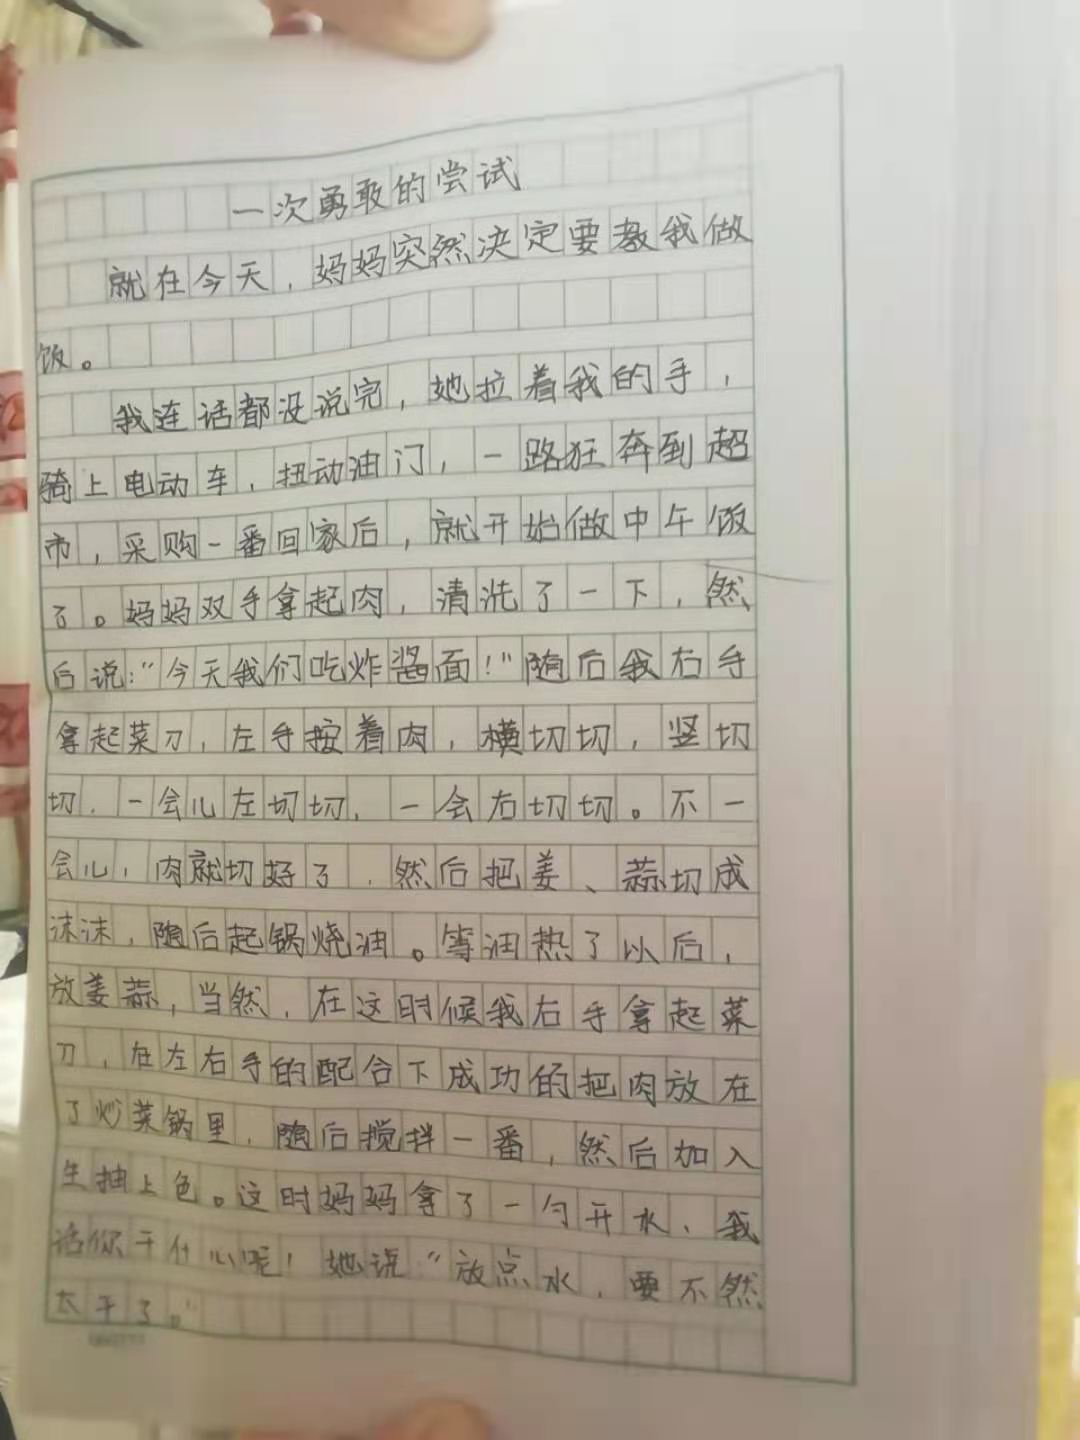 一次勇敢的尝试
就在今天，妈妈突然决定要教我做
饭。
我连话都没说完，她拉着我的手，
骑上电动车，扭动油门，一路狂奔到超
市，采购一番回家后，就开始做中午饭
了。妈妈双手拿起肉，清洗了一下，然
后说："今天我们吃炸酱面！"随后我右手
拿起菜刀，左手按着肉，横切切，竖切
切，一会儿左切切，一会右切切。不一
会儿，肉就切好了，然后把姜、蒜切成
沫沫，随后起锅烧油。等油热了以后，
放姜蒜，当然，在这时候我右手拿起菜
刀，在左右手的配合下成功的把肉放在
了炒菜锅里，随后搅拌一番，然后加入
生抽上色。这时妈妈拿了一勺开水，我
话你干什心呢！她说"放点水，要不然
太干了。"